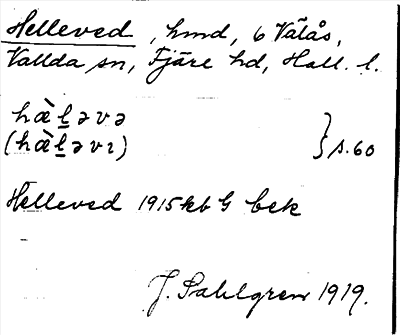 Helleved, hmd, 6 Välås,
Vallda sn, Fjäre hd, Hall. l.
hæ̀l̠əvə
(hæ̀l̠əvı) } s. 60
Helleved 1915 kb G bek
J. Sahlgren 1919.